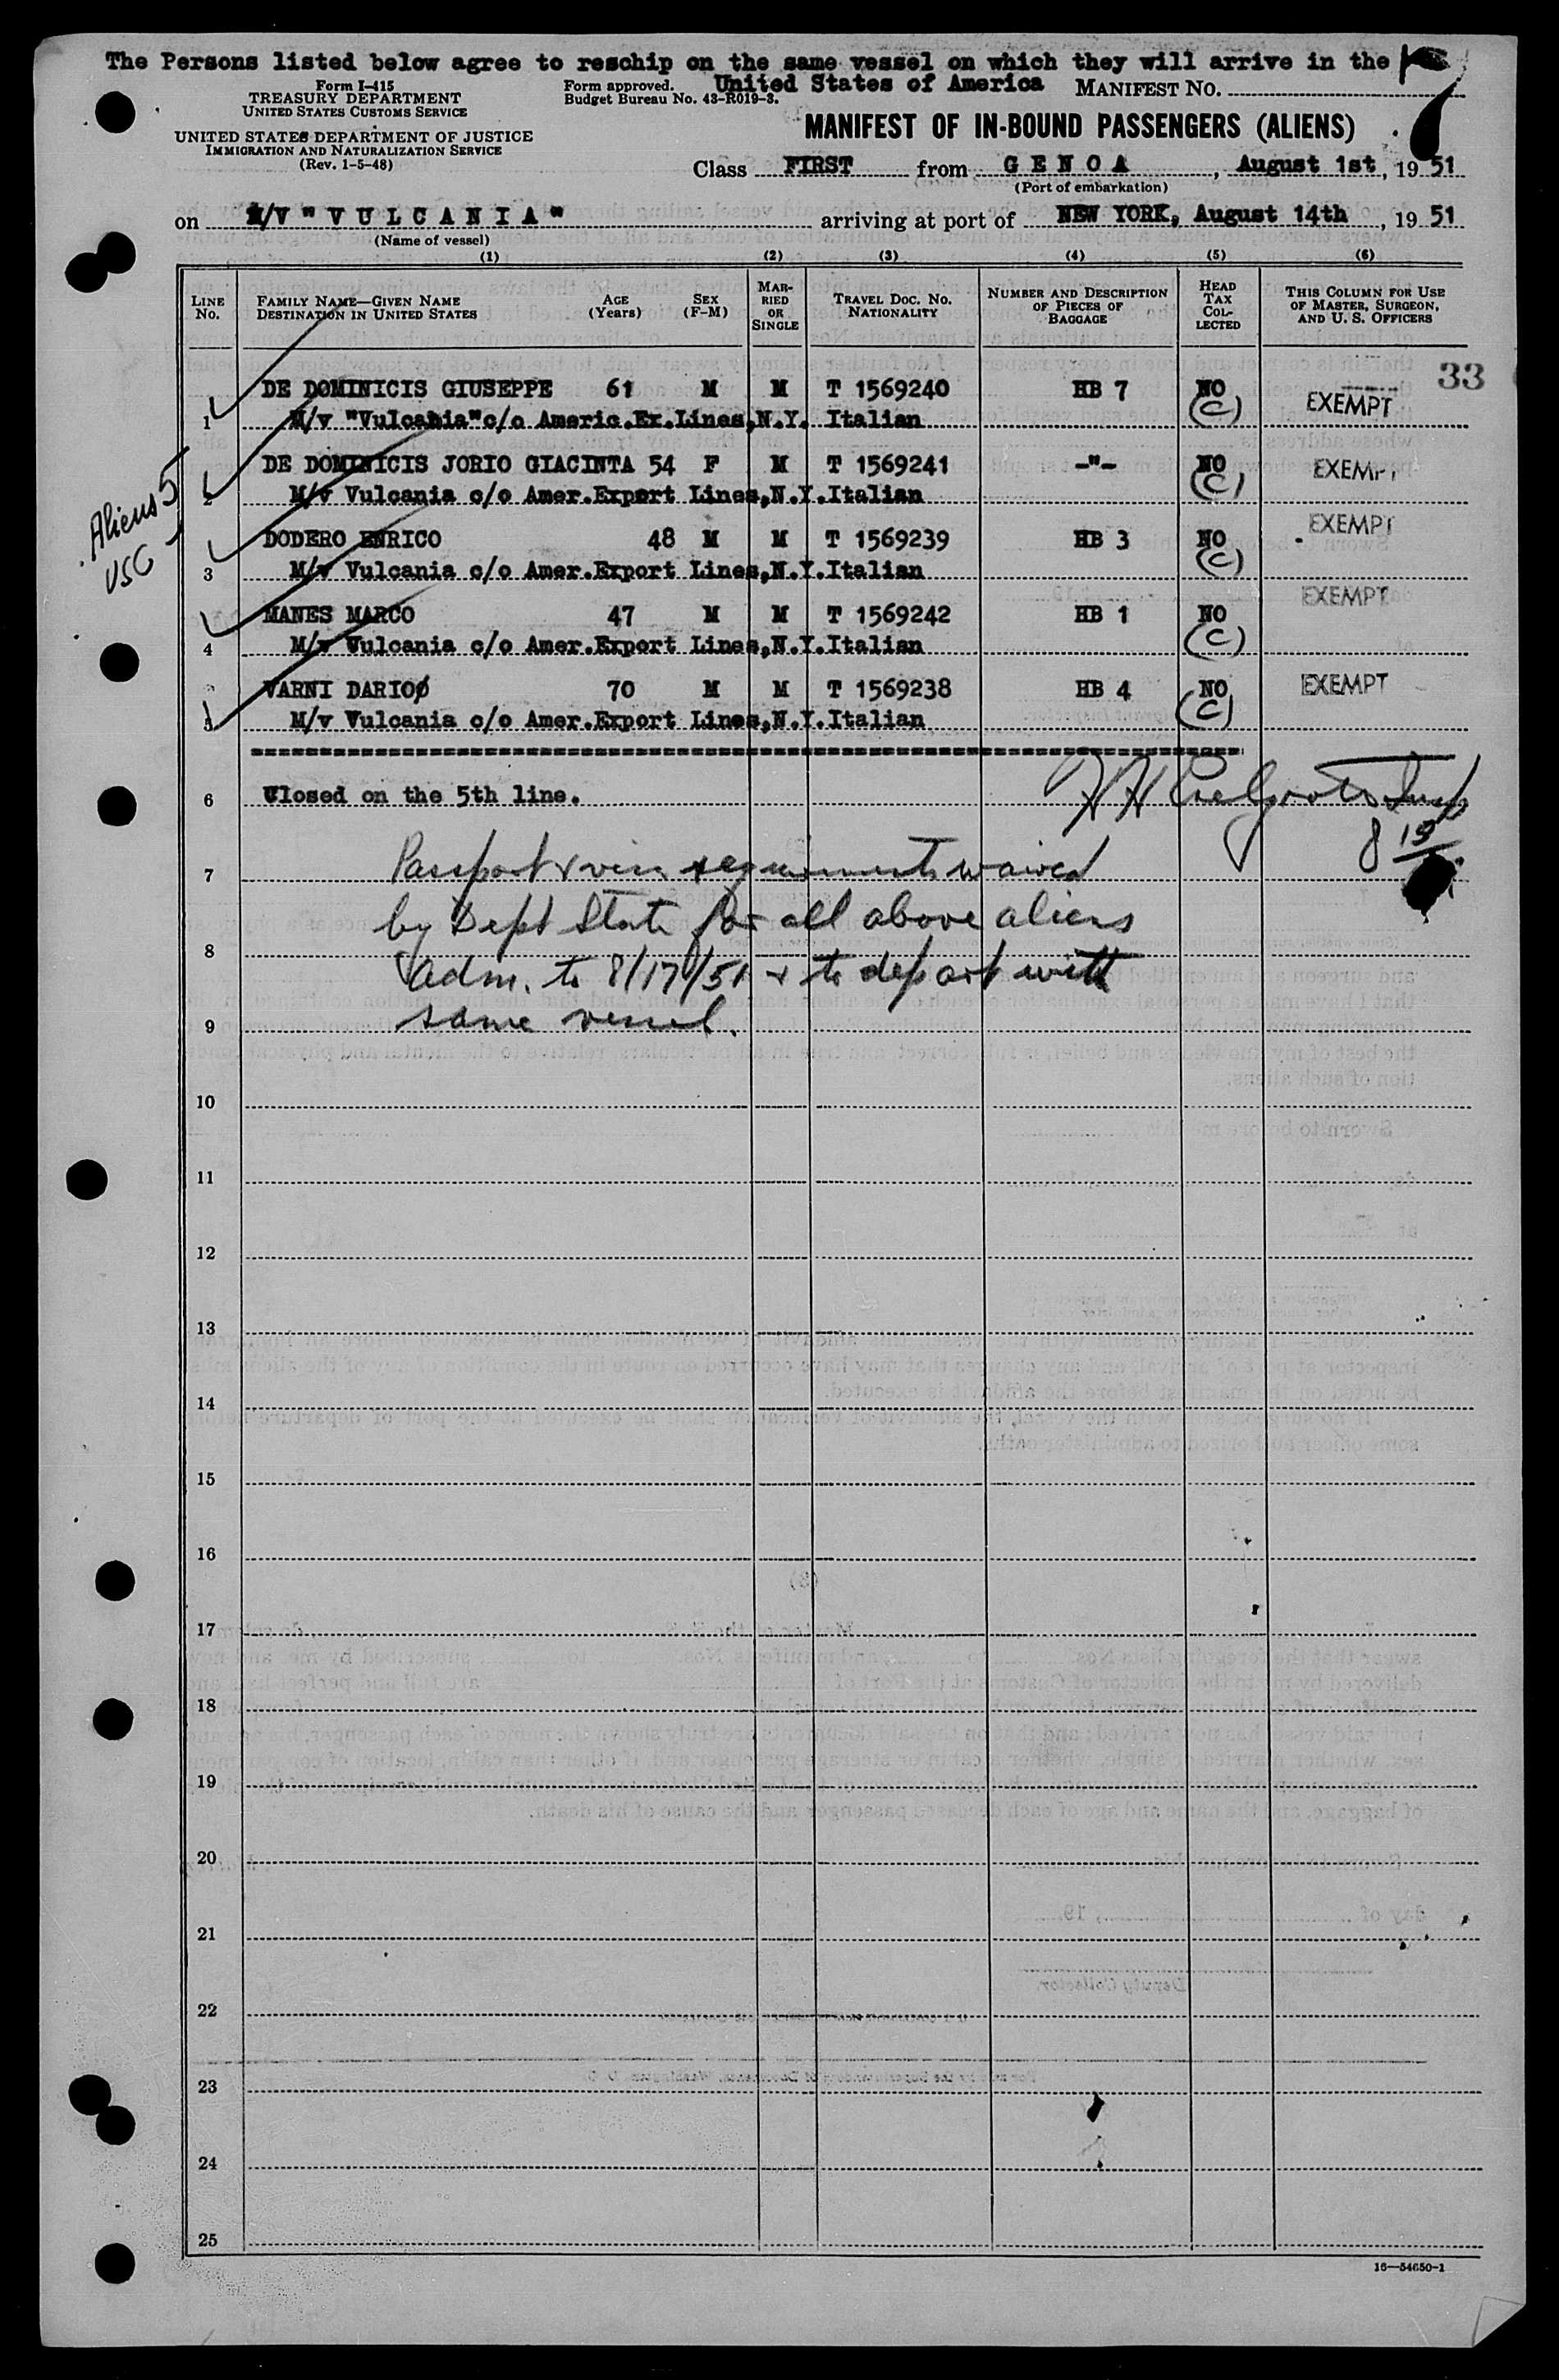 The Persons listed below agree to reschip on the same vessel on which they will arrive in the
United States of America
Form I-415
TREASURY DEPARTMENT
UNITED STATES CUSTOMS SERVICE
UNITED STATES DEPARTMENT OF JUSTICE
IMMIGRATION AND NATURALIZATION SERVICE
(Rev. 1-5-48)
Form approved.
Budget Bureau No. 43-R019-3.
MANIFEST NO.
MANIFEST OF IN-BOUND PASSENGERS (ALIENS)
Class FIRST from GENOA, August 1st, 19 51
(Port of embarkation)
on M/V "VULCANIA" arriving at port of NEW YORK, August 14th, 19 51
(Name of vessel)
(1) (2) (3) (4) (5) (6)
LINE NO. FAMILY NAME—GIVEN NAME DESTINATION IN UNITED STATES AGE (Years) SEX (F-M) MARRIED OR SINGLE TRAVEL DOC. NO. NATIONALITY NUMBER AND DESCRIPTION OF PIECES OF BAGGAGE HEAD TAX COLLECTED THIS COLUMN FOR USE OF MASTER, SURGEON, AND U. S. OFFICERS
33
DE DOMINICIS GIUSEPPE 61 M M T 1569240 HB 7 NO EXEMPT
1 M/v "Vulcania"c/o Americ.Ex.Lines,N.Y. Italian (C)
DE DOMINICIS JORIO GIACINTA 54 F M T 1569241 -"- NO EXEMPT
2 M/v Vulcania c/o Amer.Export Lines,N.Y.Italian (C)
Aliens 5
USC
DODERO ENRICO 48 M M T 1569239 HB 3 NO EXEMPT
3 M/v Vulcania c/o Amer.Export Lines,N.Y.Italian (C)
MANES MARCO 47 M M T 1569242 HB 1 NO EXEMPT
4 M/v Vulcania c/o Amer.Export Lines,N.Y.Italian (C)
VARNI DARIO 70 M M T 1569238 HB 4 NO EXEMPT
5 M/v Vulcania c/o Amer.Export Lines,N.Y.Italian (C)
6 Closed on the 5th line.
7 Passport & visa requirements waived
by Dept State for all above aliens
8
adm. to 8/17/51 & to depart with
9 same vessel.
10
11
12
13
14
15
16
17
18
19
20
21
22
23
24
25
16—54650-1